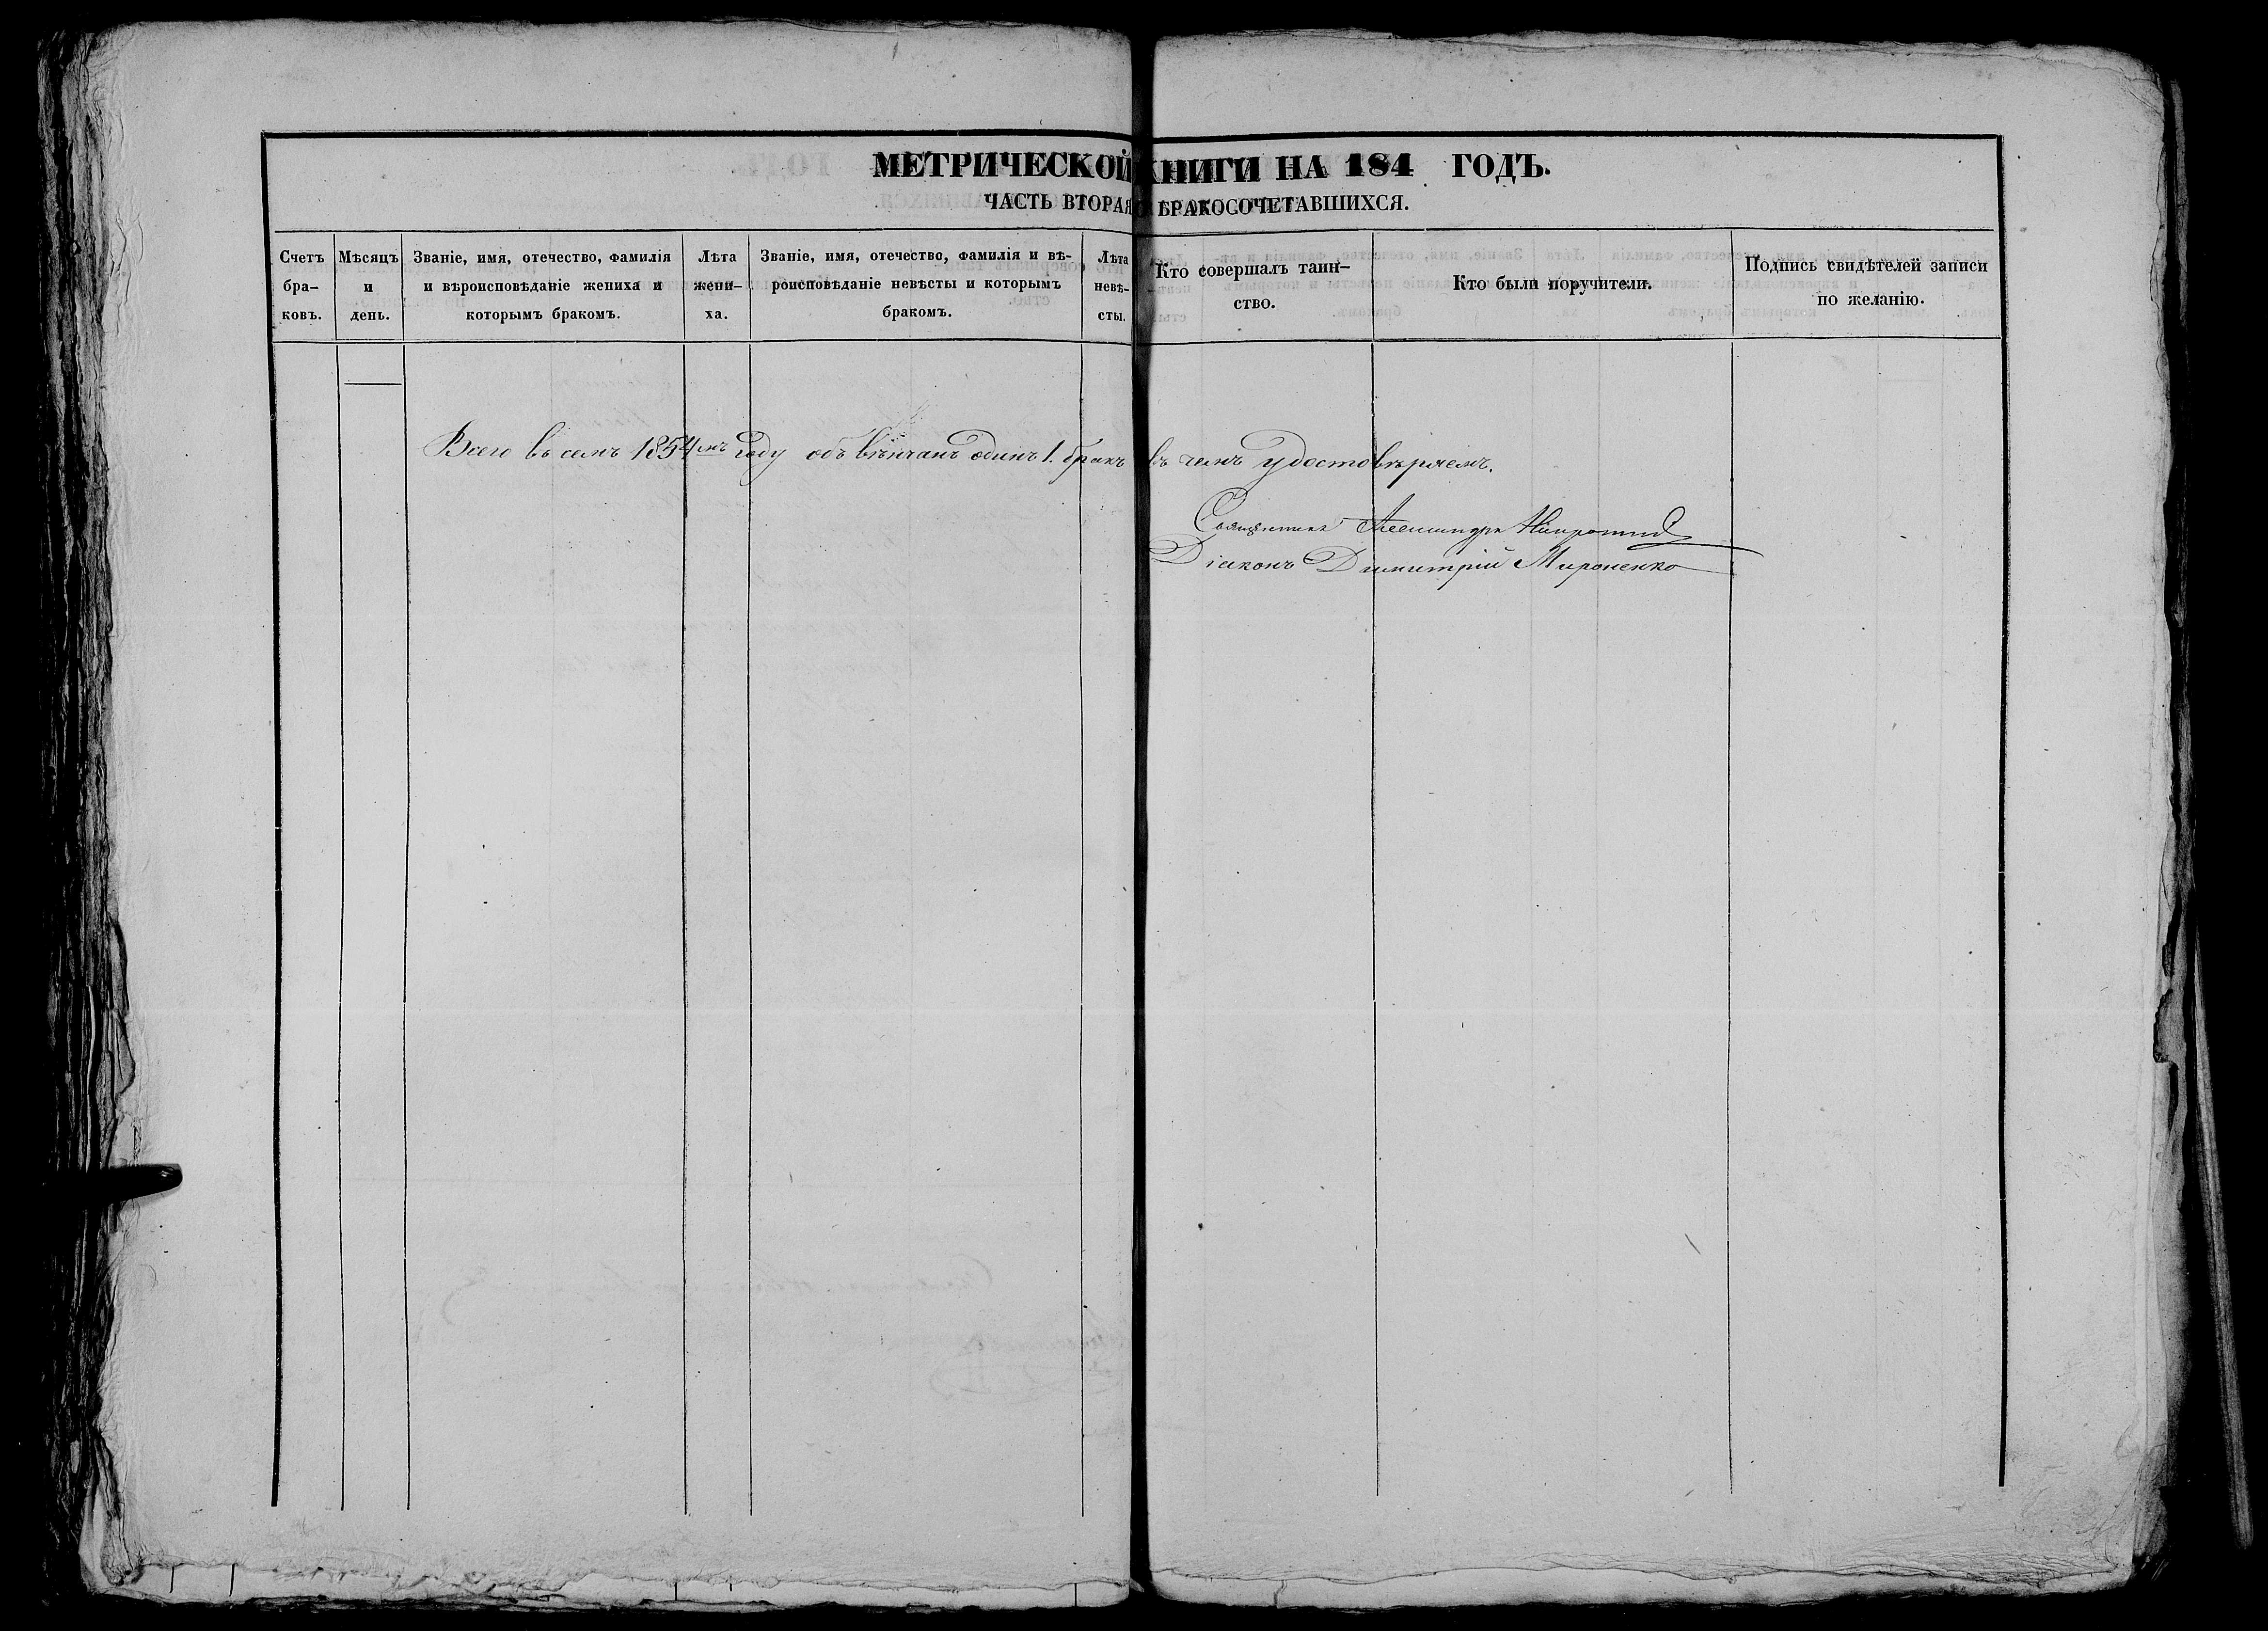 МЕТРИЧЕСКОЙ КНИГИ НА 184 ГОДЪ.
ЧАСТЬ ВТОРАЯ О БРАКОСОЧЕТАВШИХСЯ.
Счетъ бра-
ковъ.
Мѣсяцъ
и
день.
Званіе, имя, отечество, фамилія
и вѣроисповѣданіе жениха и
которымъ бракомъ.
Лѣта
жени-
ха.
Званіе, имя, отечество, фамилія и вѣ-
роисповѣданіе невѣсты и которымъ
бракомъ.
Лѣта
невѣ-
сты.
Кто совершалъ таин-
ство.
Кто были поручители.
Подпись свидѣтелей записи
по желанію.
Всего въ семъ 1854мъ году обвѣнчанъ одинъ 1. бракъ въ чемъ удостовѣряемъ.
Священникъ Александръ
Діаконъ Димитрій Мироненко